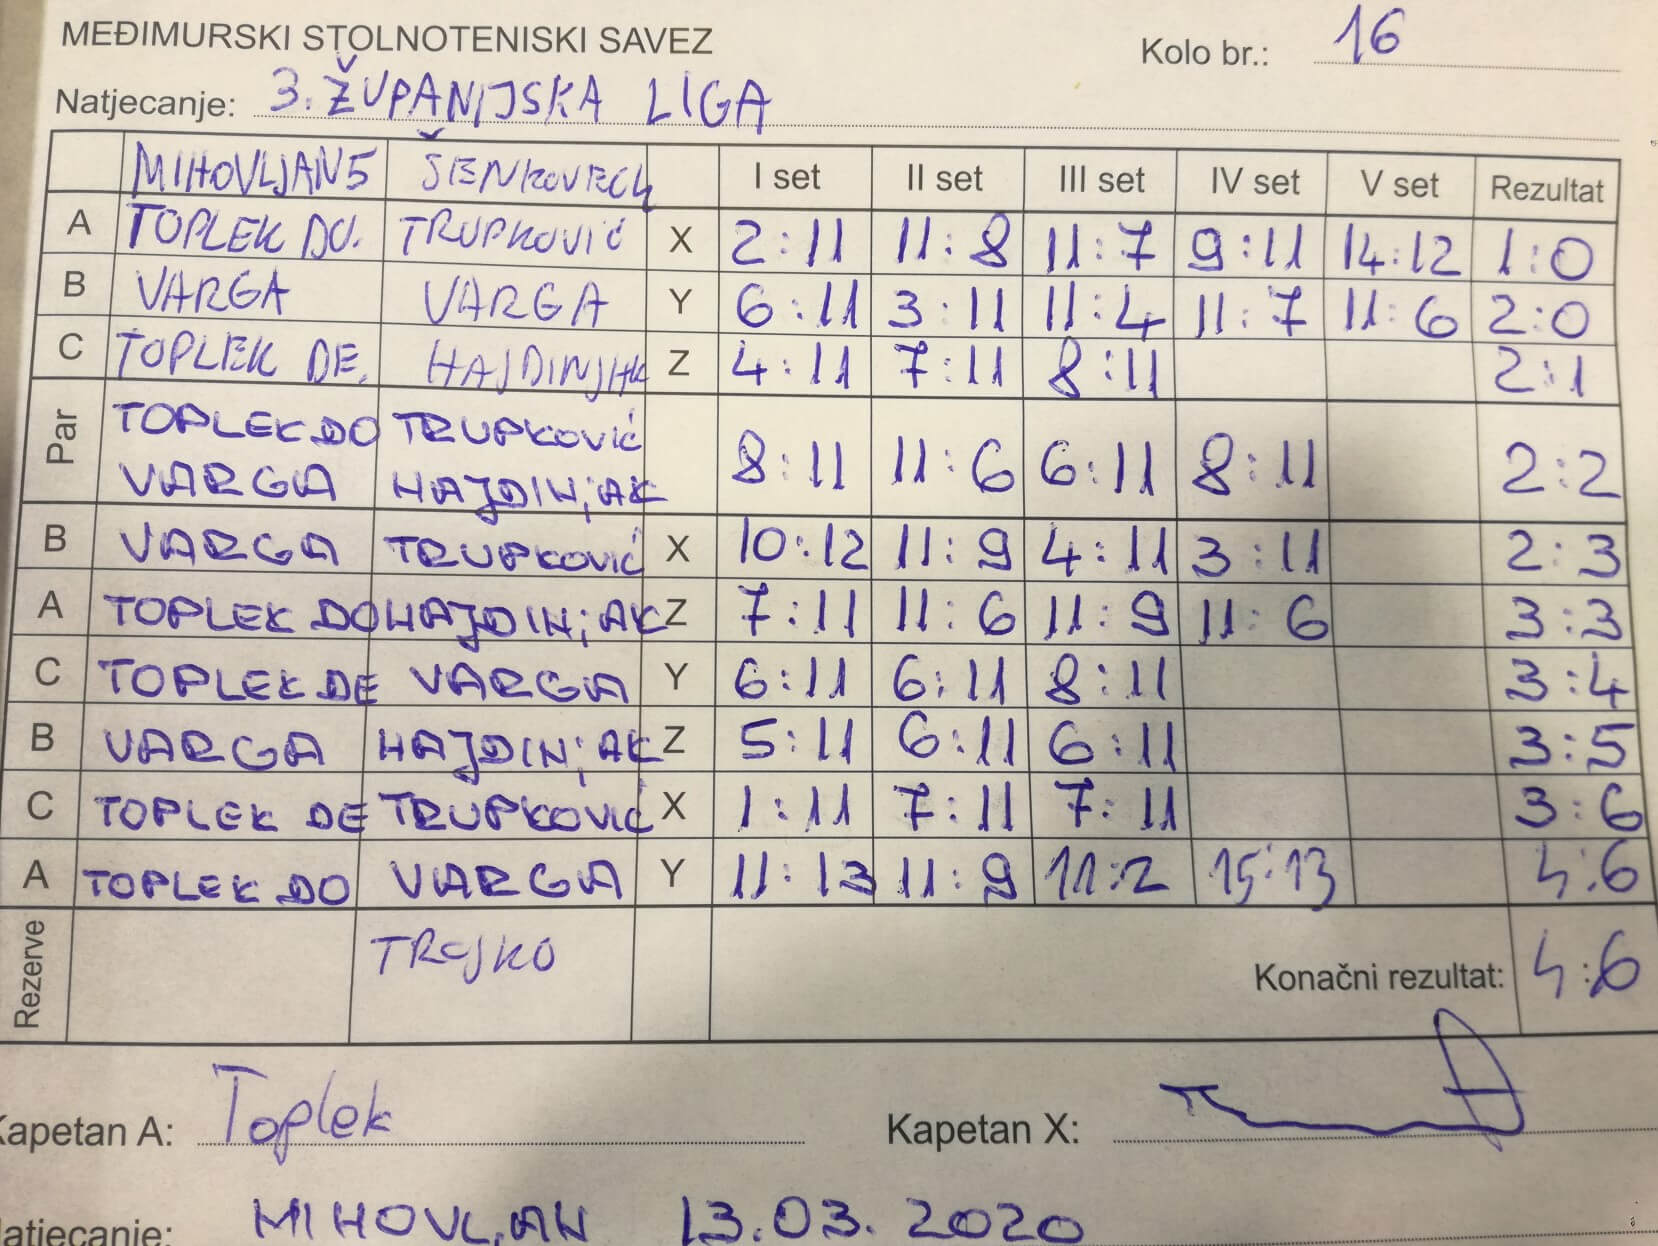 MEĐIMURSKI STOLNOTENISKI SAVEZ
Kolo br.: 16
Natjecanje: 3. ŽUPANIJSKA LIGA
MIHOVLJAN 5 ŠENKOVEC 4 I set II set III set IV set V set Rezultat
A TOPLEK DO. TRUPKOVIĆ X 2:11 11:8 11:7 9:11 14:12 1:0
B VARGA VARGA Y 6:11 3:11 11:4 11:7 11:6 2:0
C TOPLEK DE. HAJDINJAK Z 4:11 7:11 8:11 2:1
Par TOPLEK DO TRUPKOVIĆ
VARGA HAJDINjAK 8:11 11:6 6:11 8:11 2:2
B VARGA TRUPKOVIĆ X 10:12 11:9 4:11 3:11 2:3
A TOPLEK DO HAJDINjAK Z 7:11 11:6 11:9 11:6 3:3
C TOPLEK DE VARGA Y 6:11 6:11 8:11 3:4
B VARGA HAJDINjAK Z 5:11 6:11 6:11 3:5
C TOPLEK DE TRUPKOVIĆ X 1:11 7:11 7:11 3:6
A TOPLEK DO VARGA Y 11:13 11:9 11:2 15:13 4:6
Rezerve TROJKO Konačni rezultat: 4:6
Kapetan A: Toplek Kapetan X:
Natjecanje: MIHOVLjAN 13.03.2020